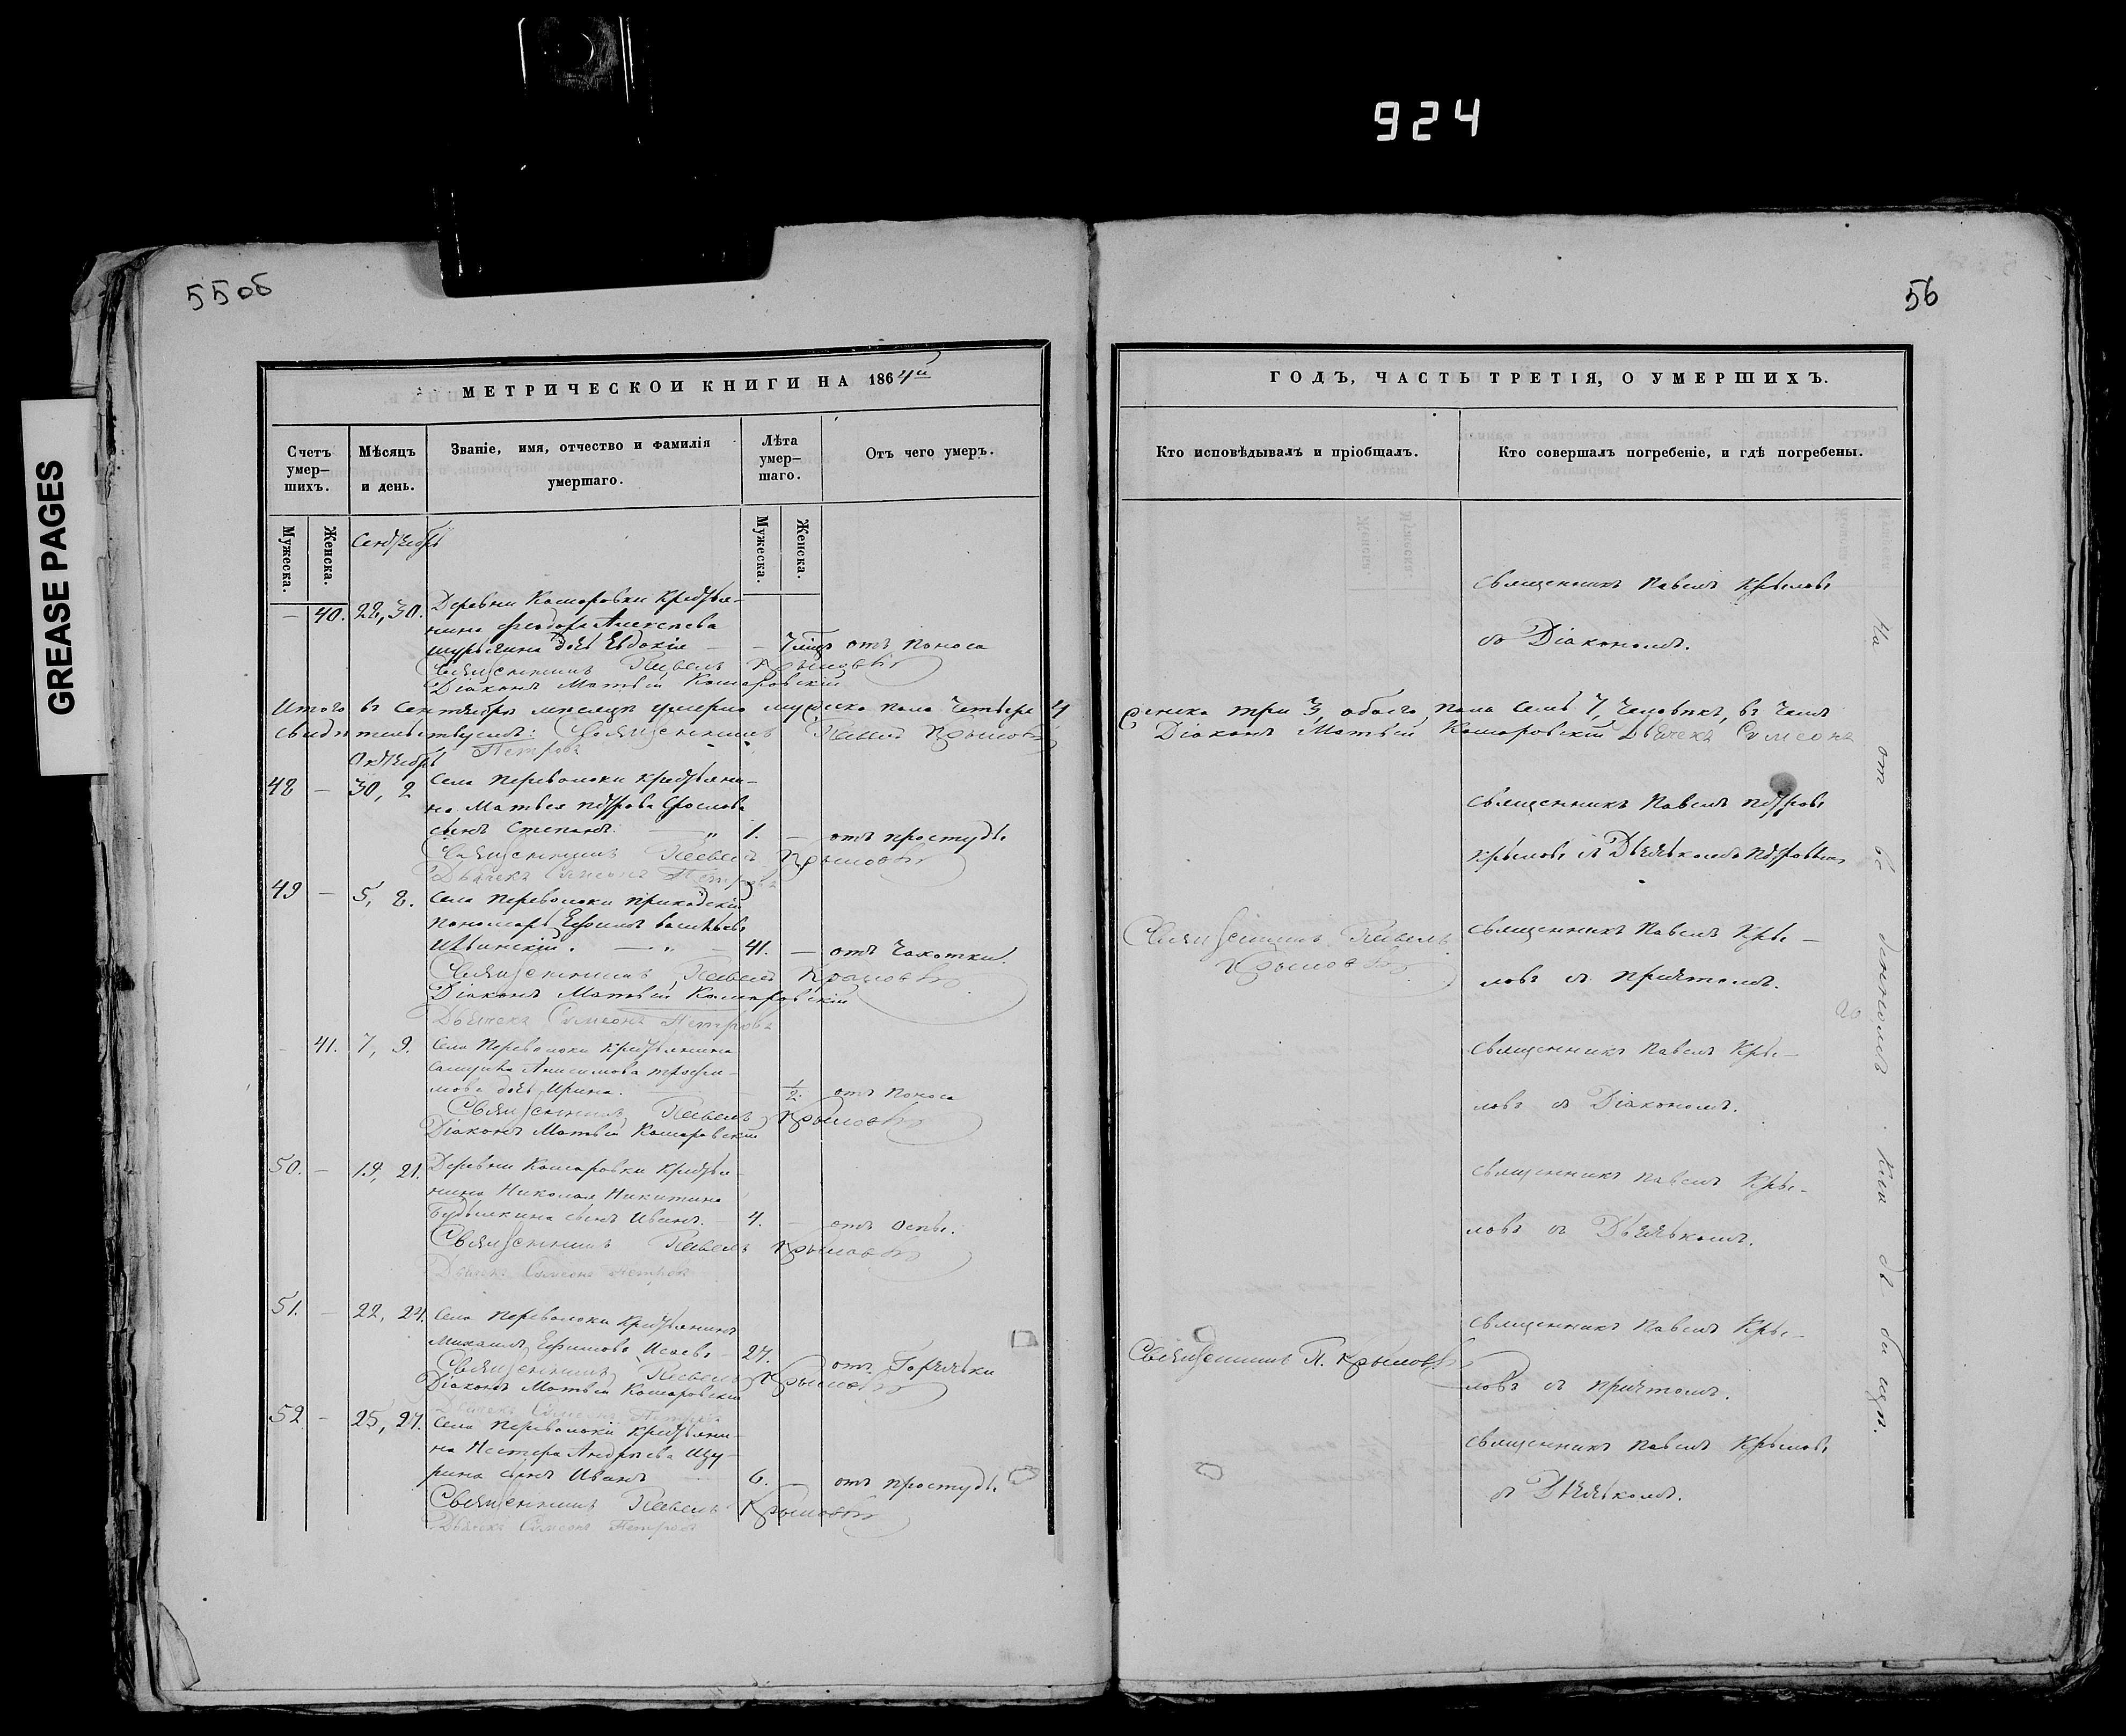 924
GREASE PAGES
55об
56
МЕТРИЧЕСКОИ КНИГИ НА 1864й
Счетъ умер-
шихъ.
Мѣсяцъ
и день.
Званіе, имя, отчество и фамилія
умершаго.
Лѣта
умер-
шаго.
Отъ чего умеръ.
Мужеска.
Женска.
Сентябрь
Мужеска.
Женска.
— 40. 28, 30. Деревни Комаровки крестья-
нина Феодора Алексѣева
дочь Евдокія — 7 мѣц отъ поноса
Священникъ Павелъ Крыловъ
Діаконъ Матвѣй Комаровскій
Итого въ Сентябрѣ мѣсяцѣ умерло мужеска пола четыре 4
свидѣтельствуемъ: Священникъ Павелъ Крыловъ
Октябрь
Петровъ
48 — 30, 2 Села Переволоки крестьяни-
на Матвея Петрова
сынъ Степанъ. — „ 1. — отъ простуды
Священникъ Павелъ Крыловъ
Дьячекъ Сѵмеонъ Петровъ
49 — 5, 8. Села Переволоки приходскій
пономарь Ефимъ Васильевъ
— „ — 41. — отъ чахотки.
Священникъ Павелъ Крыловъ
Діаконъ Матвѣй Комаровскій
Дьячекъ Сѵмеонъ Петровъ
41. 7, 9. Села Переволоки крестьянина
Анисимова Трофи-
мова дочь Ирина. 1/2. отъ поноса
Священникъ Павелъ Крыловъ
Діаконъ Матвѣй Комаровскій
50. — 19, 21. Деревни Комаровки крестья-
нина Николая Никитина
сынъ Иванъ. — 4. — отъ оспы.
Священникъ Павелъ Крыловъ
Дьячекъ Сѵмеонъ Петровъ
51. — 22, 24. Села Переволоки крестьянинъ
Михаилъ Ефимовъ Исаевъ 27. отъ горячки
Священникъ Павелъ Крыловъ
Діаконъ Матвѣй Комаровскій
Дьячекъ Сѵмеонъ Петровъ
52 — 25, 27. Села Переволоки крестьяни-
на Нестера Андреева Щу-
рина сынъ Иванъ 6. — отъ простуды
Священникъ Павелъ Крыловъ
Дьячекъ Сѵмеонъ Петровъ
ГОДЪ, ЧАСТЬ ТРЕТІЯ, О УМЕРШИХЪ.
Кто исповѣдывалъ и пріобщалъ.
Кто совершалъ погребеніе, и гдѣ погребены.
Священникъ Павелъ Крыловъ
съ Діакономъ.
женска три 3, обоего пола семь 7, человѣкъ, въ чемъ
Діаконъ Матвѣй Комаровскій Дьячекъ Сѵмеонъ
Священникъ Павелъ Петровъ
Крыловъ съ Дьячькомъ Петровымъ
Священникъ Павелъ
Крыловъ
Священникъ Павелъ Кры-
ловъ съ причтомъ.
Священникъ Павелъ Кры-
ловъ съ Діакономъ.
Священникъ Павелъ Кры-
ловъ съ Дьячькомъ.
Священникъ П. Крыловъ
Священникъ Павелъ Кры-
ловъ съ причтомъ.
Священникъ Павелъ Крыловъ
съ Дьячькомъ.
На